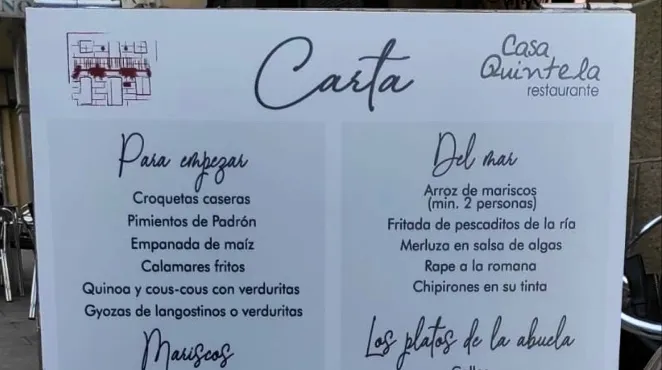 Carta
Casa
Quintela
restaurante
Para empezar
Croquetas caseras
Pimientos de Padrón
Empanada de maíz
Calamares fritos
Quinoa y cous-cous con verduritas
Gyozas de langostinos o verduritas
Mariscos
Del mar
Arroz de mariscos
(min. 2 personas)
Fritada de pescaditos de la ría
Merluza en salsa de algas
Rape a la romana
Chipirones en su tinta
Los platos de la abuela